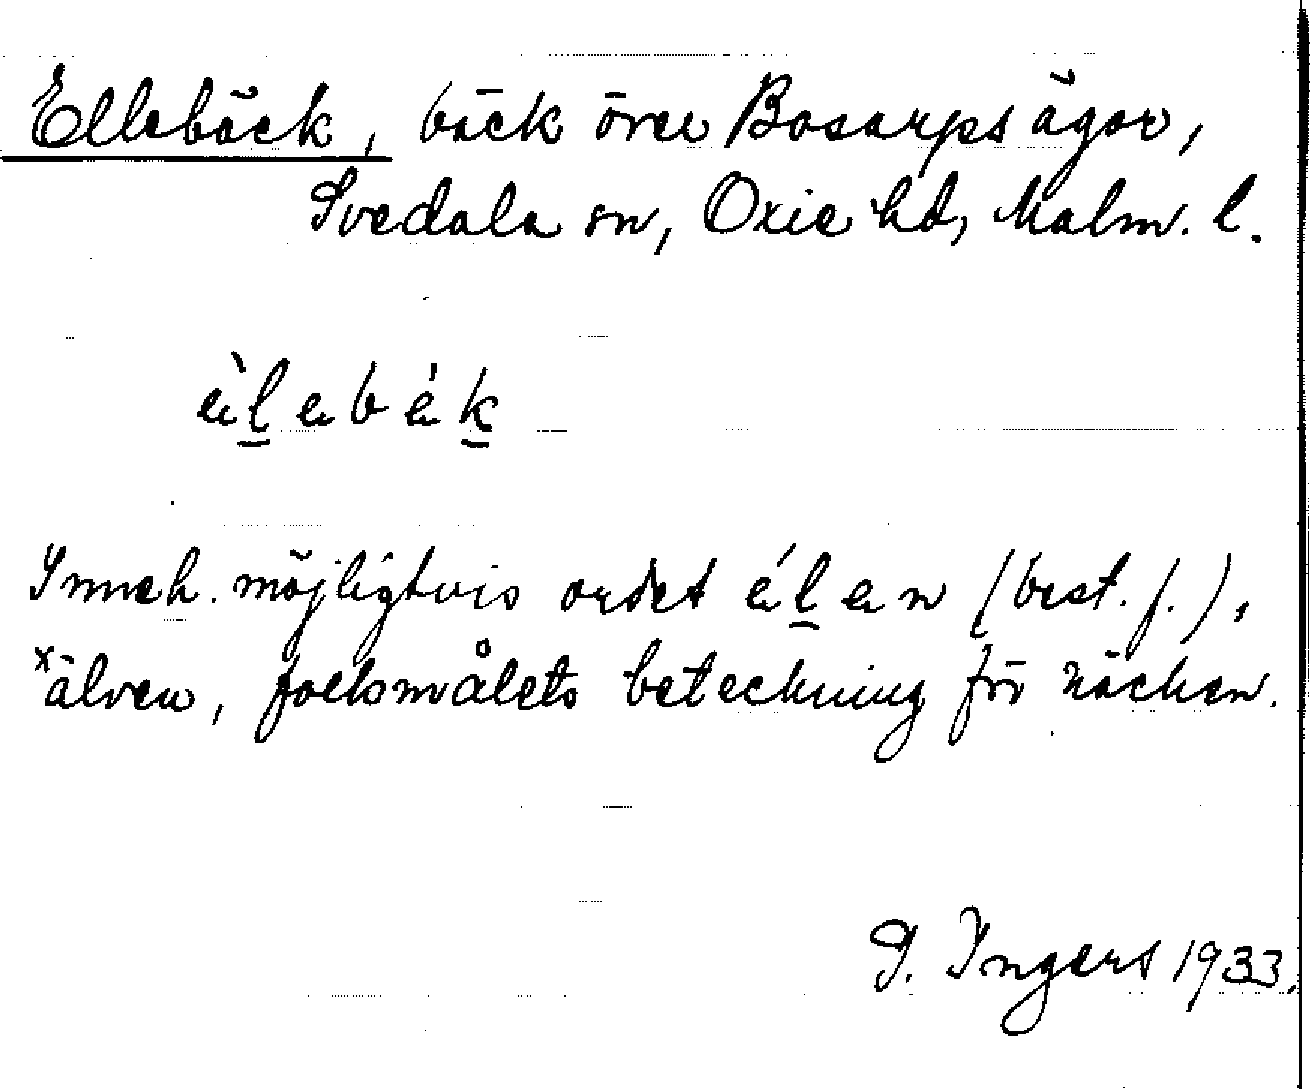 Ellebäck, bäck över Bosarps ägor,
Svedala sn, Oxie hd, Malm. l.
èl̲ebék̲
Inneh. möjligtvis ordet él̲en (best. f.),
ˣälven, folkmålets beteckning för näcken.
I. Ingers 1933.